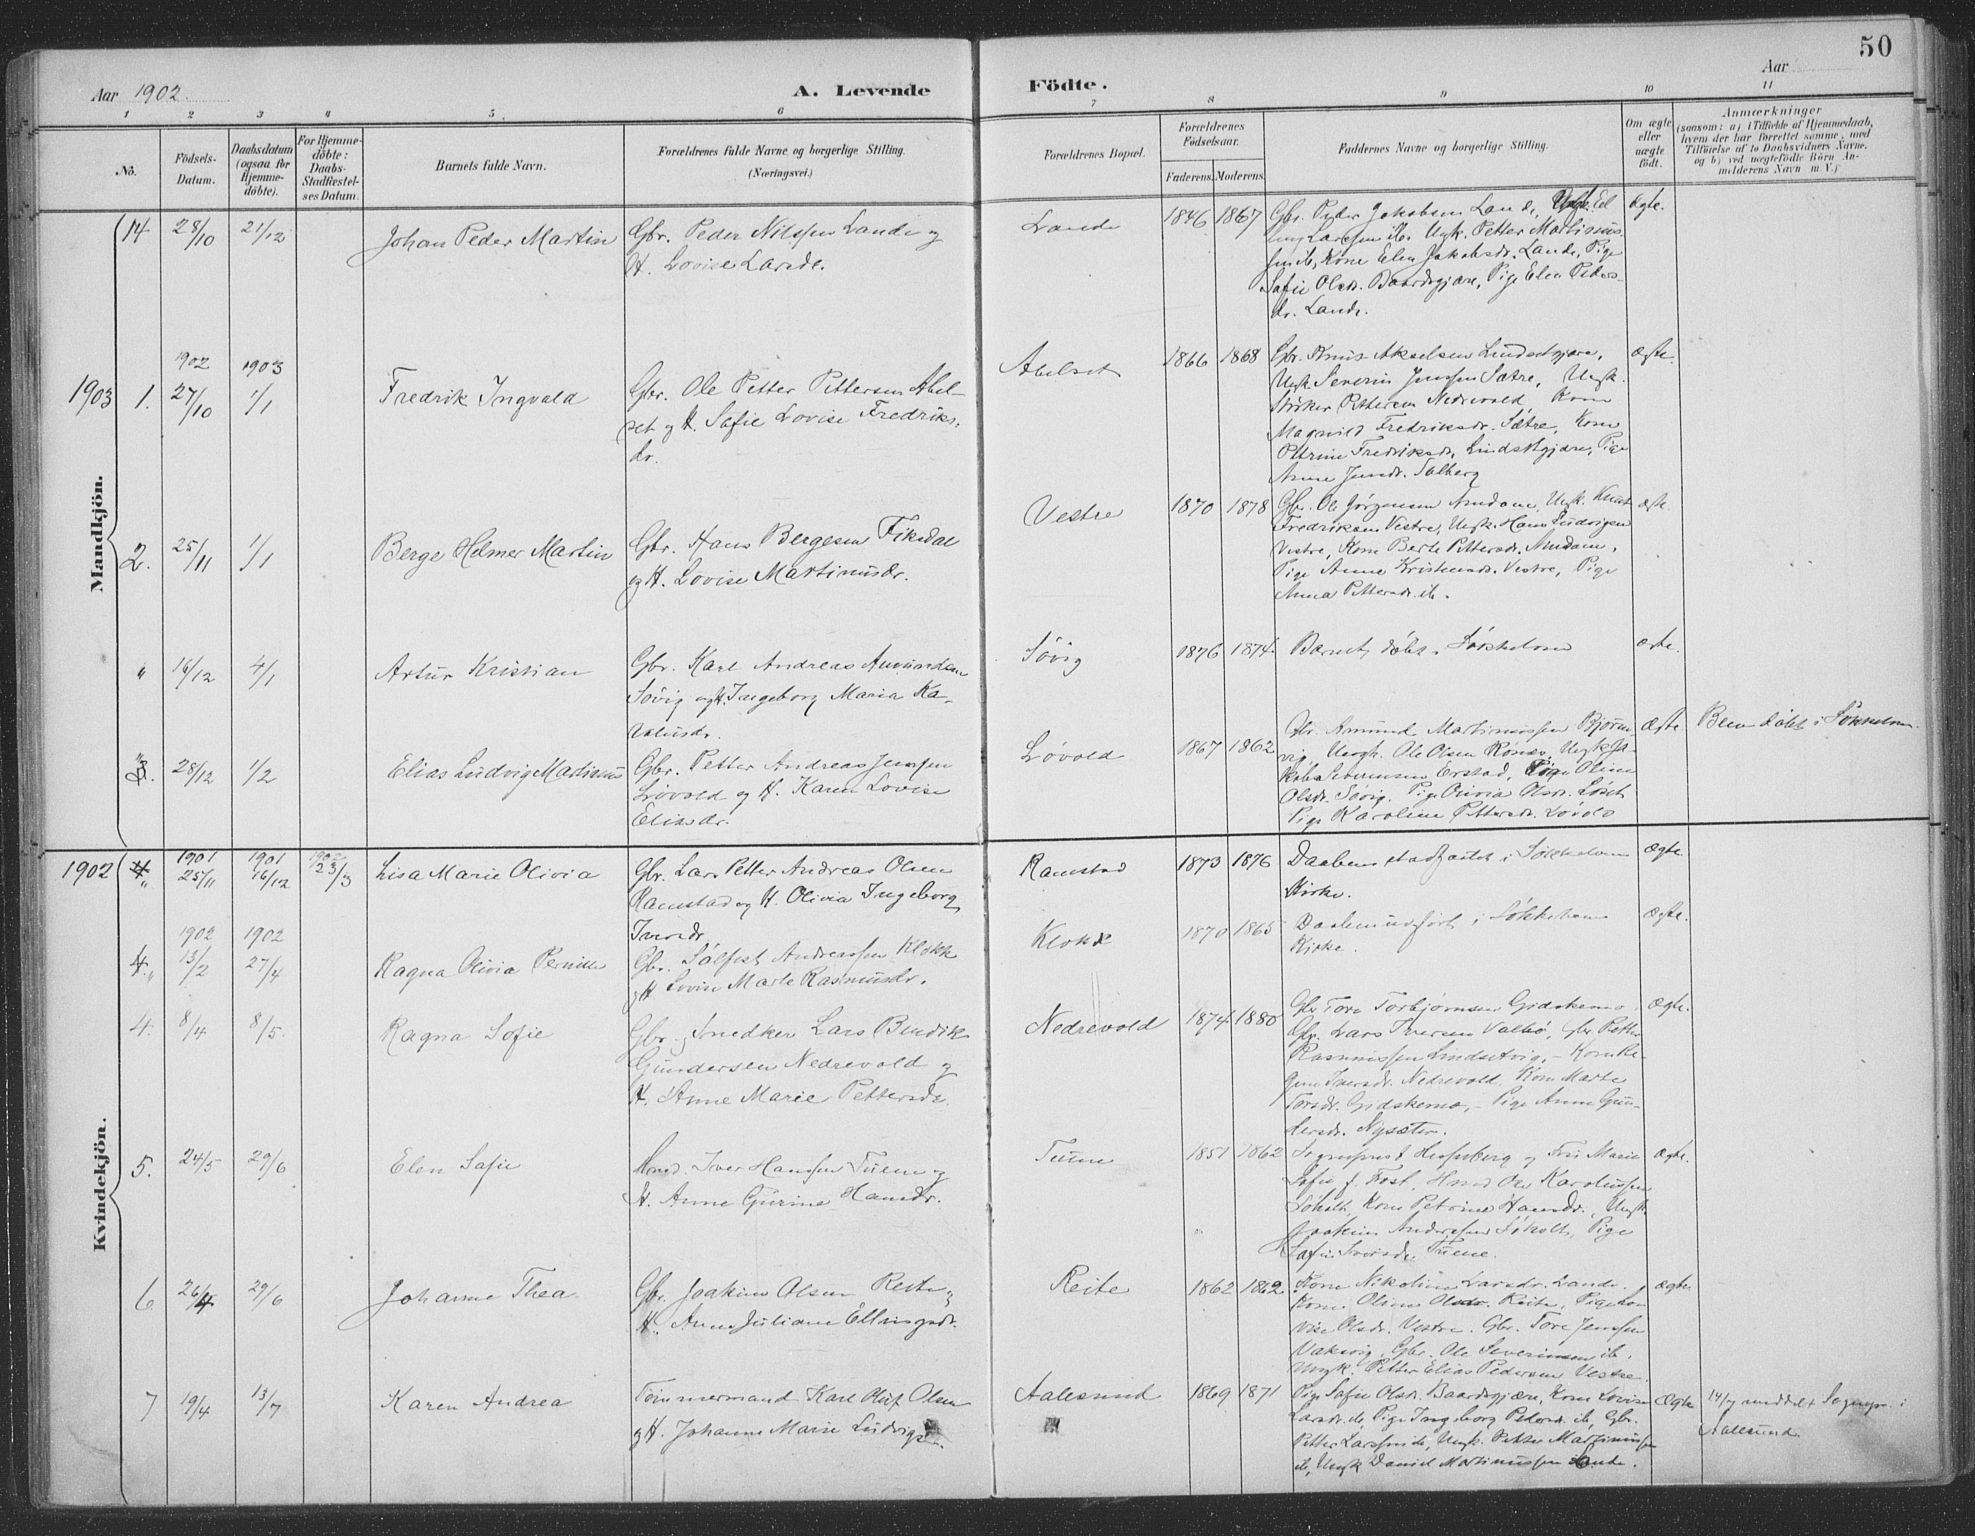 50
Aar 1902.
A. Levende
Födte.
Aar
1 2 3 4 5 6 7 8 9 10 11
No.
Födsels-
Datum.
Daabsdatum
(ogsaa for
Hjemme-
döbte).
For Hjemme-
döbte:
Daabs-
Stadfæstel-
ses Datum.
Barnets fulde Navn.
Forældrenes fulde Navne og borgerlige Stilling.
(Næringsvei.)
Forældrenes Bopæl.
Forældrenes
Födselsaar.
Faderens. Moderens.
Faddernes Navne og borgerlige Stilling.
Om ægte
eller
uægte
födt.
Anmærkninger
(saasom: a) i Tilfælde af Hjemmedaab,
hvem der har forrettet samme, med
Tilföielse af to Daabsvidners Navne,
og b) ved uægtefödte Börn An-
melderens Navn m. V.)
Mandkjön.
14. 28/10 21/12 Johan Peder Martin
Gbr. Peder Nilssen Lande og
H. Lovise Larsdr.
Lande 1846 1867
Gbr. Peder Jakobsen Lande, Ungk. El
Larssen ib. Ungk. Petter Martinus
sen ib, Kone Elen Jakobsdr. Lande, Pige
Safie Olsdr. Baardsgjære, Pige Elen Peders-
dr. Lande.
ægte.
1903 1. 1902 27/10 1903 1/1 Fredrik Ingvald
Gbr. Ole Petter Pettersen Abel-
set og H. Safie Lovise Fredriks-
dr.
Abelset 1866 1868
Gbr. Knut Akselsen Lindsetgjære,
Ungk. Severin Jenssen Sætre, Ungk.
Pettersen Nedrevold Kone
Magnild Fredriksdr. Sætre, Kone
Petrine Fredriksdr. Lindsetgjære, Pige
Anne Jensdr. Solberg
ægte.
2. 25/11 1/1 Berge Helmer Martin
Gbr. Hans Bergesen Fiksdal
og H. Lovise Martinusdr.
Vestre 1870 1878
Gbr. Ole Jørgensen Amdam, Ungk. Knut
Fredriksen Vestre, Ungk. Hans Ludvigsen
Vestre, Kone Berte Pettersdr. Amdam,
Pige Anne Kristensdr. Vestre, Pige
Anna Pettersdr. ib.
ægte.
" 16/12 4/1 Artur Kristian
Gbr. Karl Andreas Amundsen
Søvig og H. Ingeborg Maria Ka-
Søvig 1876 1874.
Barnet døbt i Søkkelven
ægte.
3. 28/12 1/2 Elias Ludvig Martinus
Gbr. Petter Andreas Jenssen
Løvold og H. Karen Lovise
Eliasdr.
Løvold 1867 1862
Gbr. Amund Martinussen Bjørne-
vig, Ungk. Ole Olsen Ramstad, Ungk. Ja-
kob Severinsen Erstad, Pige Oline
Olsdr. Søvig. Pige Olivia Olsdr. Løset
Pige Karoline Pettersdr. Løvold
ægte. Blev døbt i Søkkelven.
Kvindekjön.
1902 " 1901 25/11 1901 16/12 1902 23/3 Lisa Marie Olivia
Gbr. Lars Petter Andreas Olsen
Ramstad og H. Olivia Ingeborg
Iversdr.
Ramstad 1873 1876
Daaben stadfæstet i Søkkelven
Kirke.
Ægte.
" 1902 13/2 1902 27/4 Ragna Olivia Pernille
Gbr. Sølfest Andreassen Klokk
og H Lovise Marte Rasmusdr.
Klokk 1870 1865
Daaben udført i Søkkelven
Kirke.
Ægte.
4. 8/4 8/5. Ragna Sofie
Gbr. og Snedker Lars Bendik
Gundersen Nedrevold og
H. Anne Marie Pettersdr.
Nedrevold 1874. 1880
Gbr. Tore Torbjørnsen Gidskemo
Gbr. Lars Iversen Valbø, Gbr. Petter
Rasmussen Lindsetvig, - Kone Re-
Iversdr. Nedrevold, Kone Marte
Torsdr. Gidskemo, - Pige Anne Gun-
dersdr. Nysæter.
Ægte.
5. 24/5 29/6 Elen Safie
Hmd. Iver Hanssen Tuene og
H. Anne Gurine Hansdr.
Tuene 1851 1862
Sogneprest og Fru Marie
Safie f. Fost, Hmd Ole Karolussen
Søholt, Kone Petrine Hansdr., Ungk.
Joakim Andreassen Søholt, Pige
Safie Iversdr. Tuene.
Ægte.
6 26/4 29/6 Johanne Thea
Gbr. Joakim Olsen Reite og
H. Anne Juliane Ellingsdr.
Reite 1862 1862.
Kone Nikoline Larsdr. Lande.
Kone Oline Olsdr. Reite, Pige Lo-
vise Olsdr. Vestre. Gbr. Tore Jenssen
Vaksvig, Gbr. Ole Severinsen ib.
Ungk. Petter Elias Pedersen Vestre.
Ægte
7 19/4 13/7 Karen Andrea
Tømmermand Karl Oluf Olsen
og H. Johanne Marie Ludvigsdr.
Aalesund 1869 1871
Pige Safie Olsdr. Baardsgjære, Kone Lovise
Larsdr. ib, Pige Ingeborg Pedersdr. ib, Gbr.
Petter Larssen ib, Ungk. Petter Martinussen
ib, Ungk Daniel Martinussen Lande.
Ægte 14/7 meddelt Sognepr. i
Aalesund.